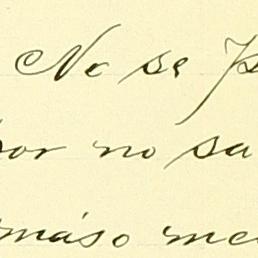 No se
por no sa
más o me